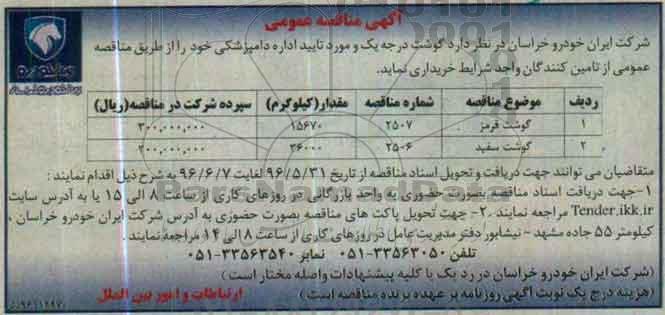 آگهی مناقصه عمومی
شرکت ایران خودرو خراسان در نظر دارد گوشت درجه یک و مورد تایید اداره دامپزشکی خود را از طریق مناقصه
عمومی از تامین کنندگان واجد شرایط خریداری نماید.
ردیف موضوع مناقصه شماره مناقصه مقدار(کیلوگرم) سپرده شرکت در مناقصه(ریال)
۱ گوشت قرمز ۲۵۰۷ ۱۵۶۷۰ ۳۰۰,۰۰۰,۰۰۰
۲ گوشت سفید ۲۵۰۶ ۳۶۰۰۰ ۲۰۰,۰۰۰,۰۰۰
متقاضیان می توانند جهت دریافت و تحویل اسناد مناقصه از تاریخ ۹۶/۵/۳۱ لغایت ۹۶/۶/۷ به شرح ذیل اقدام نمایند :
۱-جهت دریافت اسناد مناقصه بصورت حضوری به واحد بازرگانی در روزهای کاری از ساعت ۸ الی ۱۵ یا به آدرس سایت
Tender.ikk.ir مراجعه نمایند .۲- جهت تحویل پاکت های مناقصه بصورت حضوری به آدرس شرکت ایران خودرو خراسان ،
کیلومتر ۵۵ جاده مشهد - نیشابور دفتر مدیریت عامل در روزهای کاری از ساعت ۸ الی ۱۴ مراجعه نمایند .
تلفن ۳۳۵۶۳۰۵۰-۰۵۱ نمابر ۳۳۵۶۳۵۴۰-۰۵۱
(شرکت ایران خودرو خراسان در رد یک یا کلیه پیشنهادات واصله مختار است)
(هزینه درج یک نوبت آگهی روزنامه بر عهده برنده مناقصه است)
ارتباطات و امور بین الملل